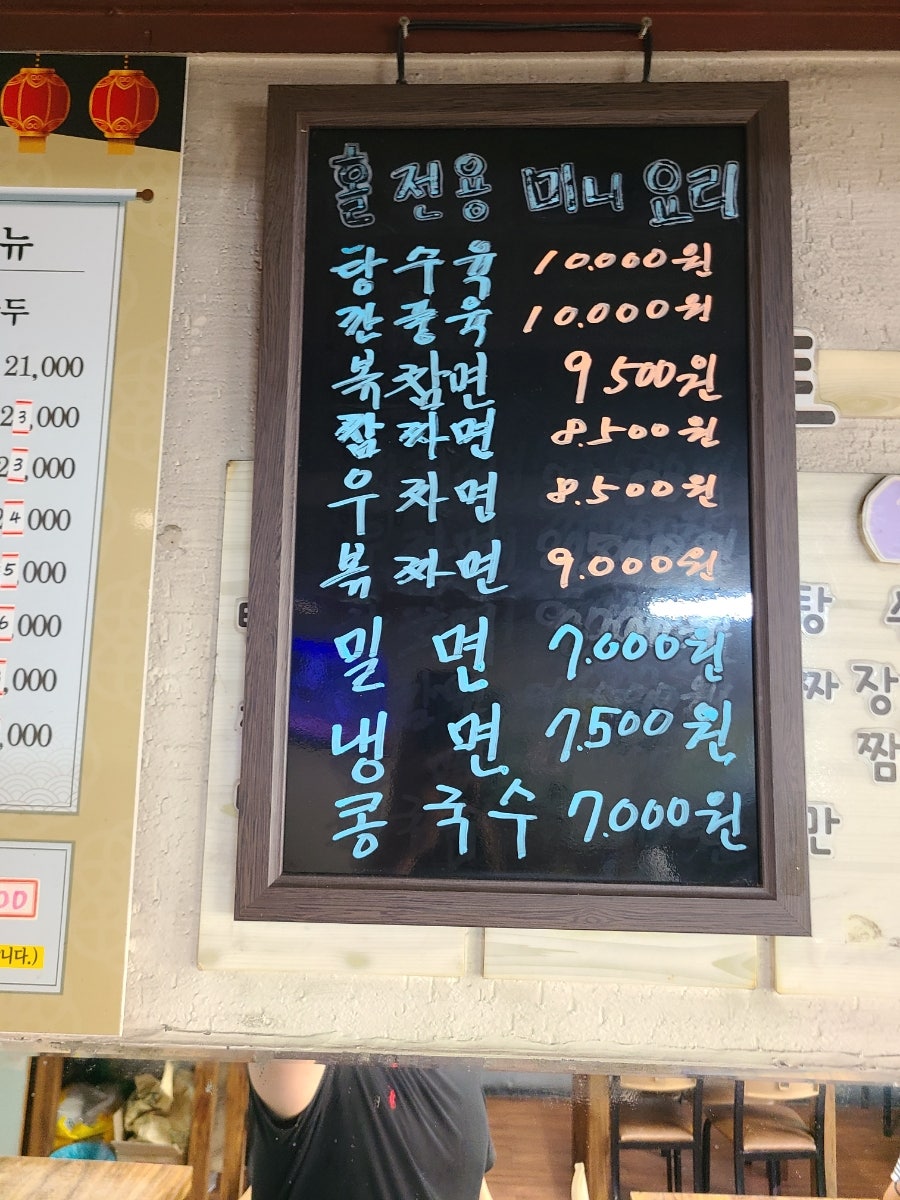 홀 전용 미니 요리
탕 수 육 10.000원
깐 풍 육 10.000원
볶 잠면 9500원
짬 짜 면 8.500원
우 짜 면 8.500원
볶 짜면 9.000원
밀 면 7.000원
냉 면 7.500원
콩 국수 7.000원
뉴
두
21,000
23,000
23,000
24 000
5,000
6,000
,000
,000
00
니다.)
탕
짜 장
짬
만